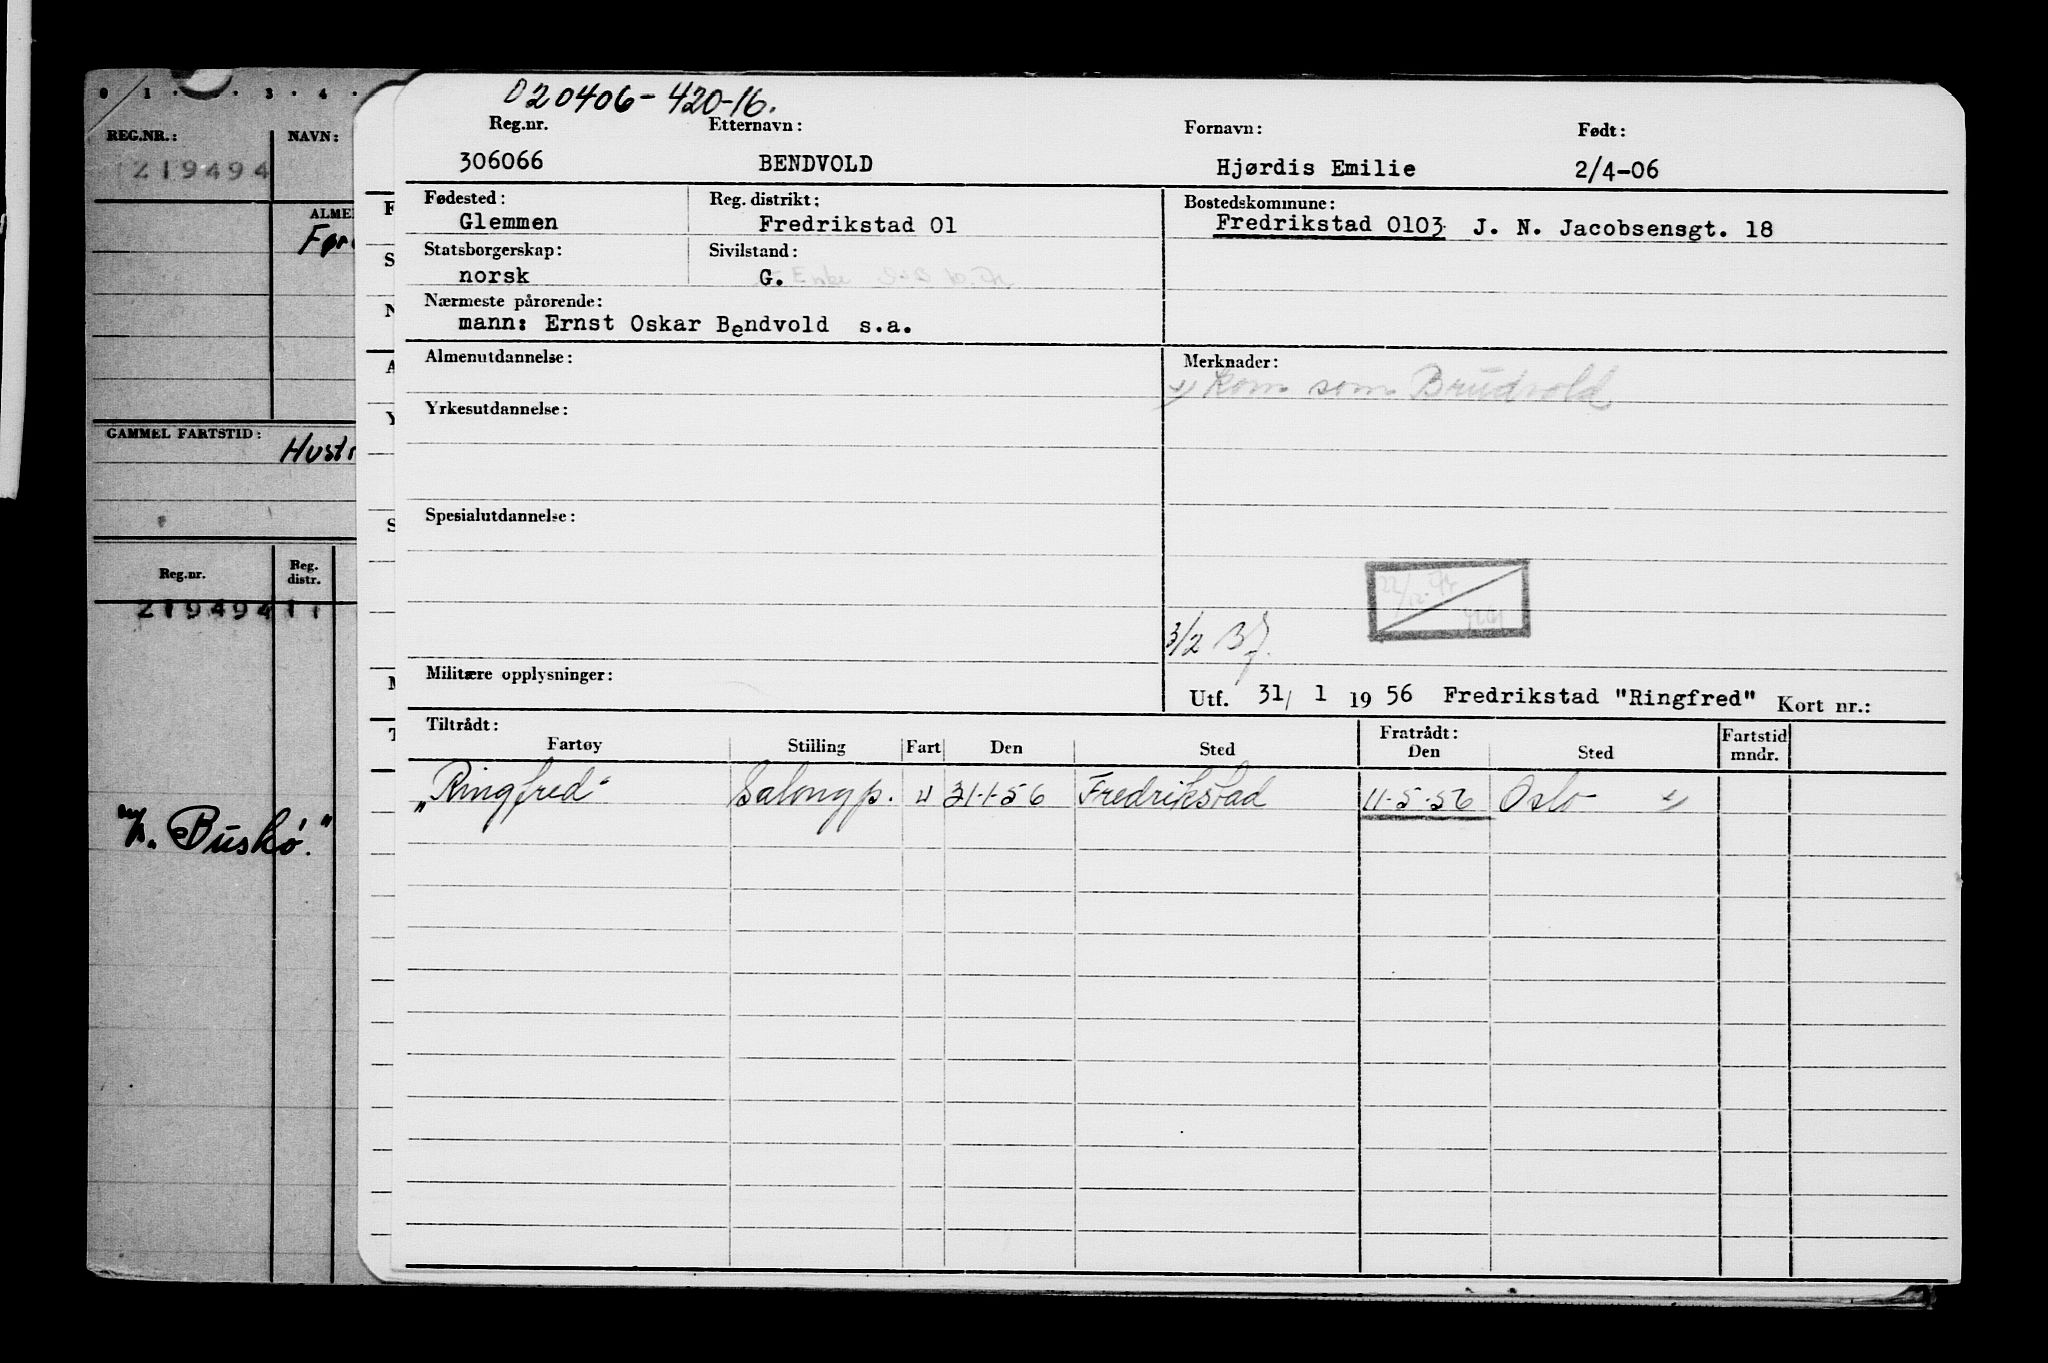 0 1 . . 3 . 4 .
REG.NR.: NAVN:
219494
ALME
Før
GAMMEL FARTSTID:
Hust
Reg.nr. Reg. distr.
219494 11
M/S. "Buskø."
020406-420-16.
Reg.nr. Etternavn: Fornavn: Født:
306066 BENDVOLD Hjørdis Emilie 2/4-06
Fødested: Reg. distrikt: Bostedskommune:
Glemmen Fredrikstad 01 Fredrikstad 0103 J. N. Jacobsensgt. 18
Statsborgerskap: Sivilstand:
norsk G. Enke
Nærmeste pårørende:
mann: Ernst Oskar Bendvold s.a.
Almenutdannelse: Merknader:
x) kom som Brudvold
Yrkesutdannelse:
Spesialutdannelse:
3/2 BJ.
Militære opplysninger:
Utf. 31/ 1 19 56 Fredrikstad "Ringfred" Kort nr.:
Tiltrådt: Fratrådt: Fartstid
Fartøy Stilling Fart Den Sted Den Sted mndr.
„Ringfred" Salongp. u 31-1-56 Fredrikstad 11-5-56 Oslo x)